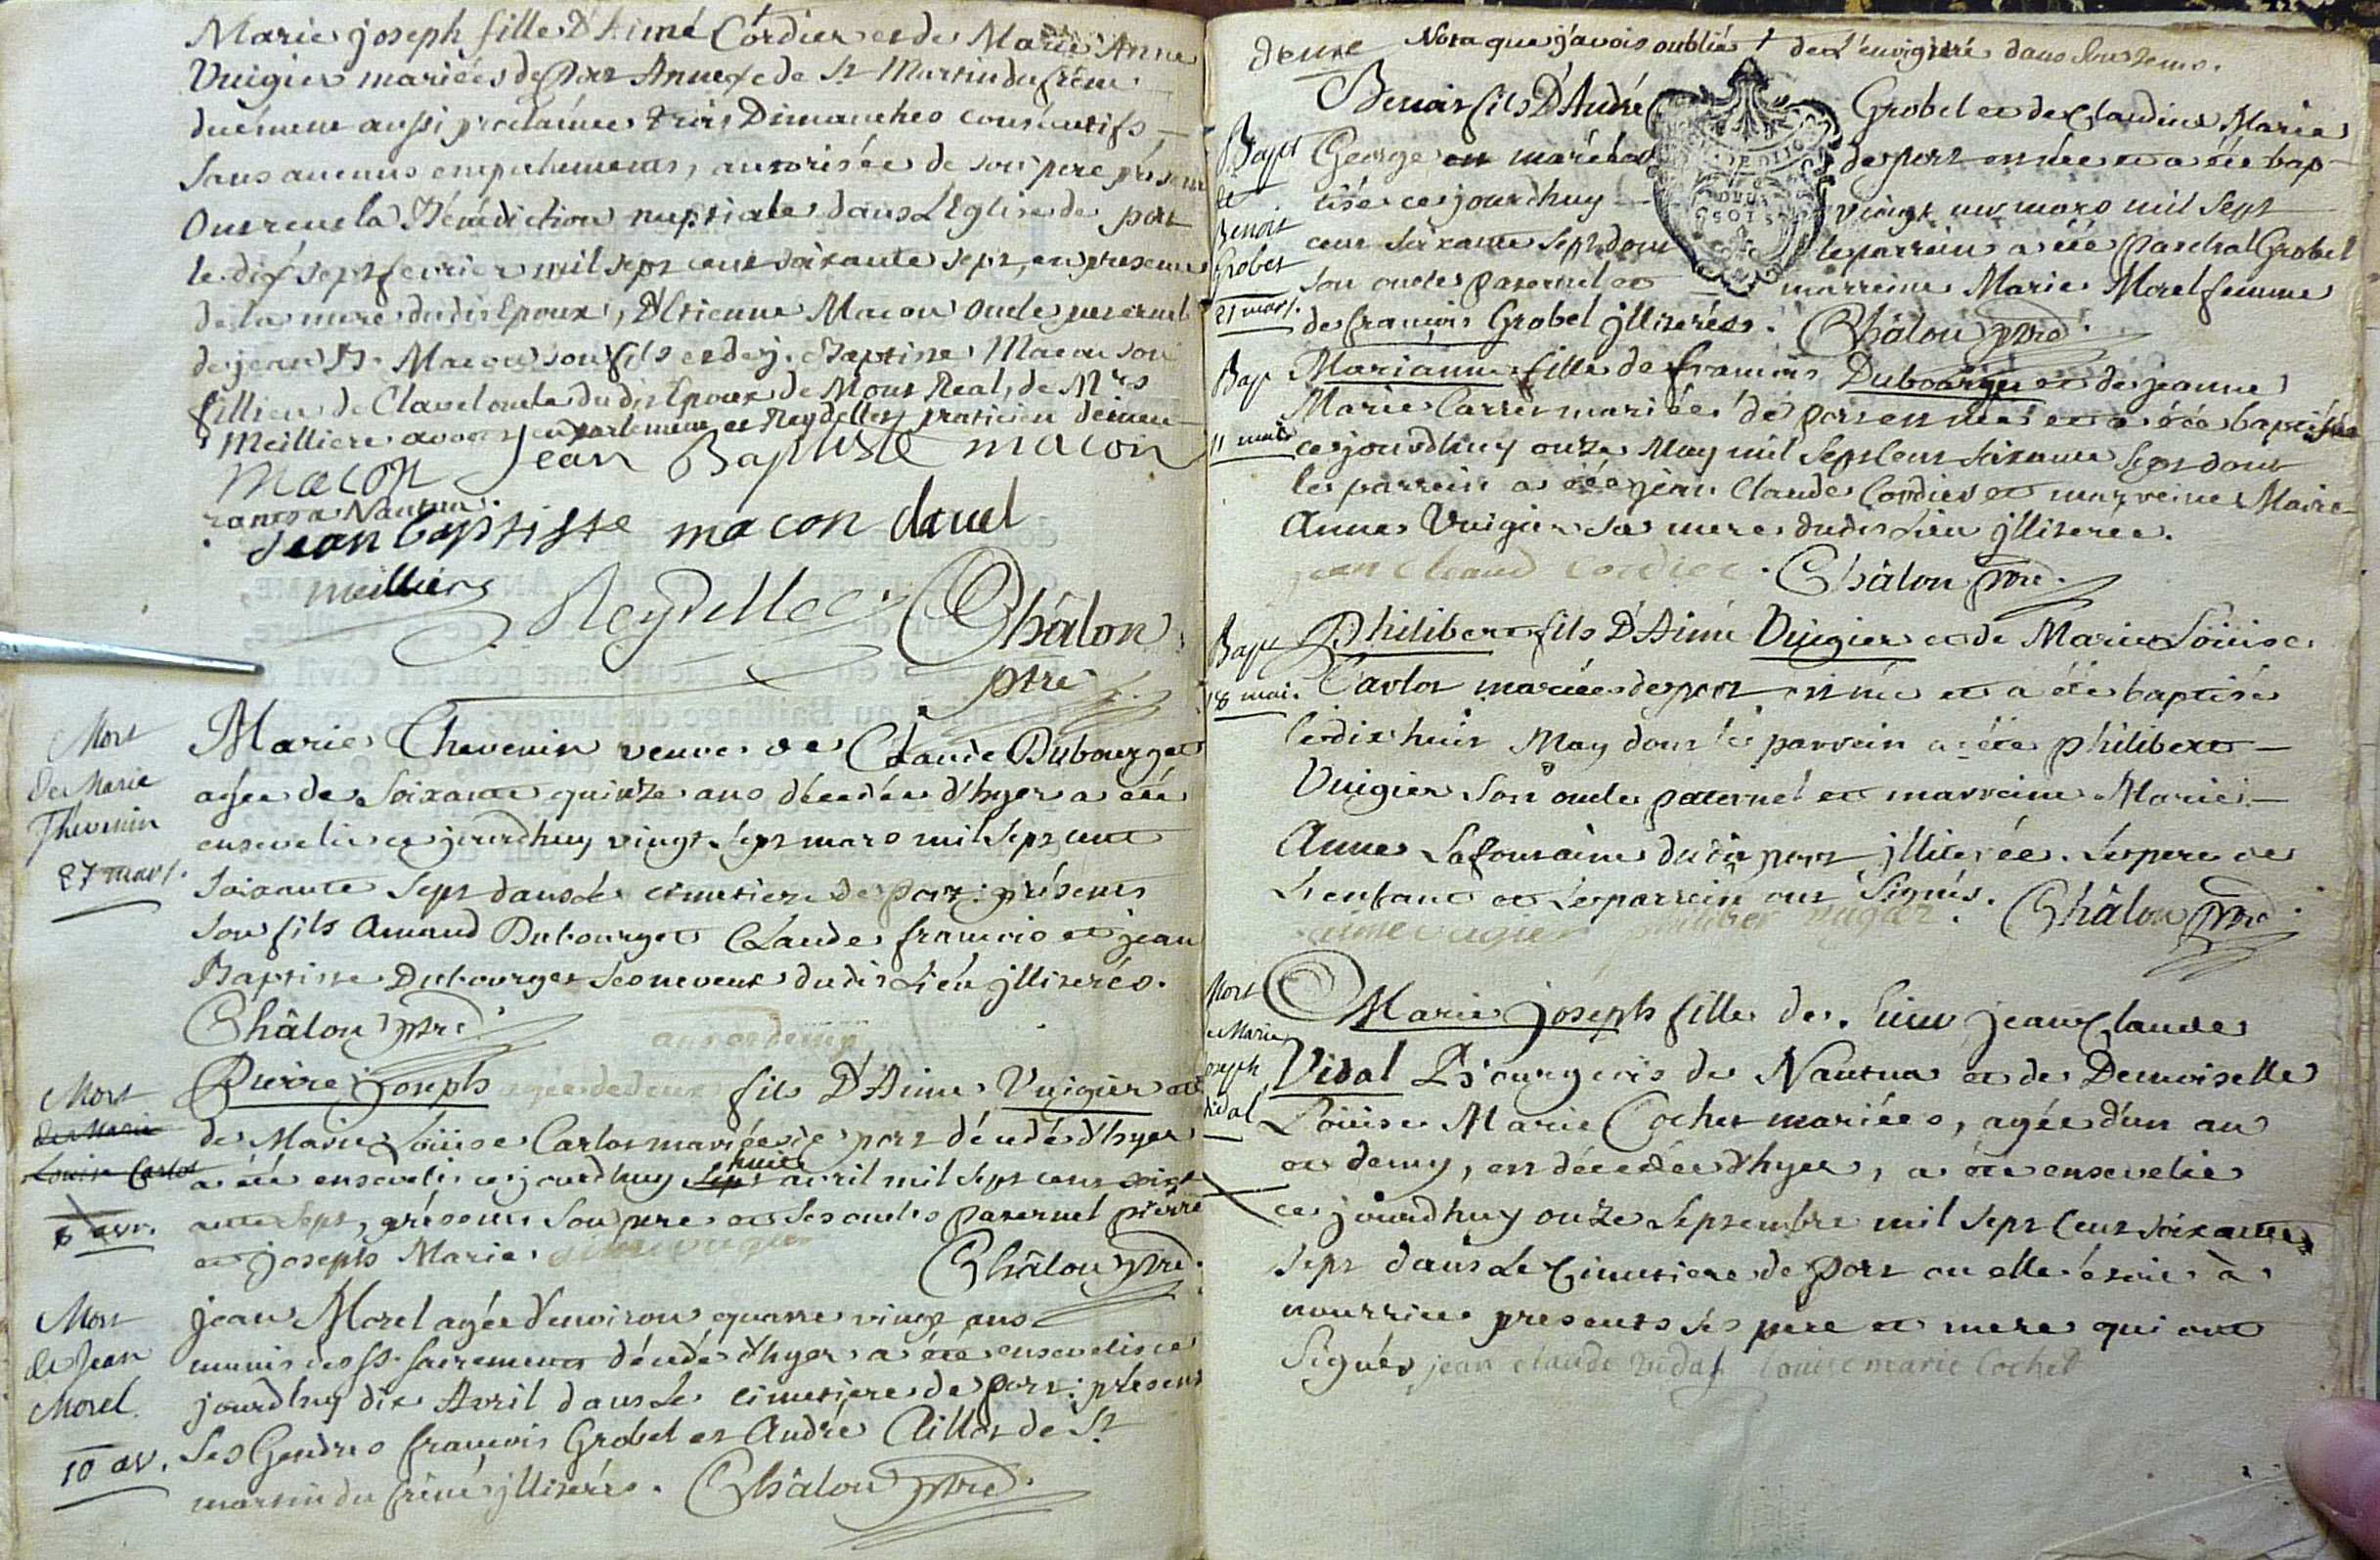 Marie joseph fille D'Aimé Cordier et de Marie Anne
Vuigier mariées de Port Annexe de St Martin du frêne
duement aussi proclamée trois Dimanches consécutifs
sans aucuns empechements, autorisée de son pere présent
Ont reçus la Bénédiction nuptiale dans L'Eglise de port
le dix sept fevrier mil sept cent soixante sept, en presence
de la mere dudit Epoux, D'Etienne Macon oncle paternel
de jean B. Macon son fils et de j. Baptiste Macon son
fillieu de Clavel oncle dudit Epoux de Mont Real, de Mrs
Meilliere avocat en parlement et Reydellet praticien demeu-
macon Jean Baptiste macon
rants a Nantua.
jean baptiste macon clavel
meilliere Reydellet Châlon
ptre
Mort
de Marie
Thevenin
27 mars.
Marie Thevenin veuve de Claude Dubourget
agée de soixante quinze ans décedée d'hyer a été
ensevelie ce jourdhuy vingt sept mars mil sept cent
soixante sept dans le cimetiere de port: présents
son fils Amand Dubourget Claude francois et jean
Baptiste Dubourget ses neveux dudit Lieu jlliterés.
Châlon ptre
an et demy
Mort
de Marie
Louise Carlot
8 avr.
Pierre joseph agée de deux fils D'Aimé Vuigier et
de Marie Loüise Carlot mariées de port décedé d'hyer
a été enseveli ce jourdhuy sept huit avril mil sept cent soix
ante sept, présents son pere et ses oncles paternel pierre
et joseph Marie. aime vugier
Châlon ptre.
Mort
de Jean
Morel
10 av.
jean Morel agée d'environ quatre vingt ans
munis des st. sacrements décedé d'hyer a été enseveli ce
jourdhuy dix Avril dans le cimetiere de port: présents
ses Gendres francois Grobel et André Aillot de St
martin du frêne jlliterés. Châlon ptre.
deuxe Nota que j'avois oublié de L'enregistré dans son tems.
Bapt
de
Benoit
Grobel
21 mars.
Benoit fils D'André Grobel et de Claudine Marie
George en mariées de port est née et a été bap-
tisé ce jourdhuy vingt un mars mil sept
cent soixante sept dont le parrein a été Paschal Grobel
son oncle paternel et marreine Marie Morel femme
de francois Grobel jlliterés. Châlon ptre.
Bap
11 mai
Marianne fille de francois Dubourget et de jeanne
Marie Carrier mariées de port est née et a été baptisée
ce jourdhuy onze May mil sept cent soixante sept dont
le parrein a été jean Claude Cordier et marreine Marie
Anne Vuigier sa mere dudit Lieu jlliterée.
jean claud cordier. Châlon ptre.
Bapt
18 mai.
Philibert fils D'Aimé Vuigier et de Marie Loüise
Carlot mariées de port est né et a été baptisé
le dix huit May dont le parrein a été philibert
Vuigier son oncle paternel et marreine Marie
Anne Lafontaine dudit port jlliterée. Le pere de
L'enfant et le parrein ont signés.
aime vugier philiber vugier. Châlon ptre.
Mort
de Marie
joseph
Vidal
Marie joseph fille de sieur jean Claude
Vidal Bourgeois de Nantua et de Demoiselle
Loüise Marie Cochet mariées, agée d'un an
et demy, est décedée d'hyer, a été ensevelie
ce jourdhuy onze septembre mil sept cent soixante
sept dans le Cimetiere de port ou elle étoit à
nourrice presents ses pere et mere qui ont
signés jean claude vidal louise marie cochet